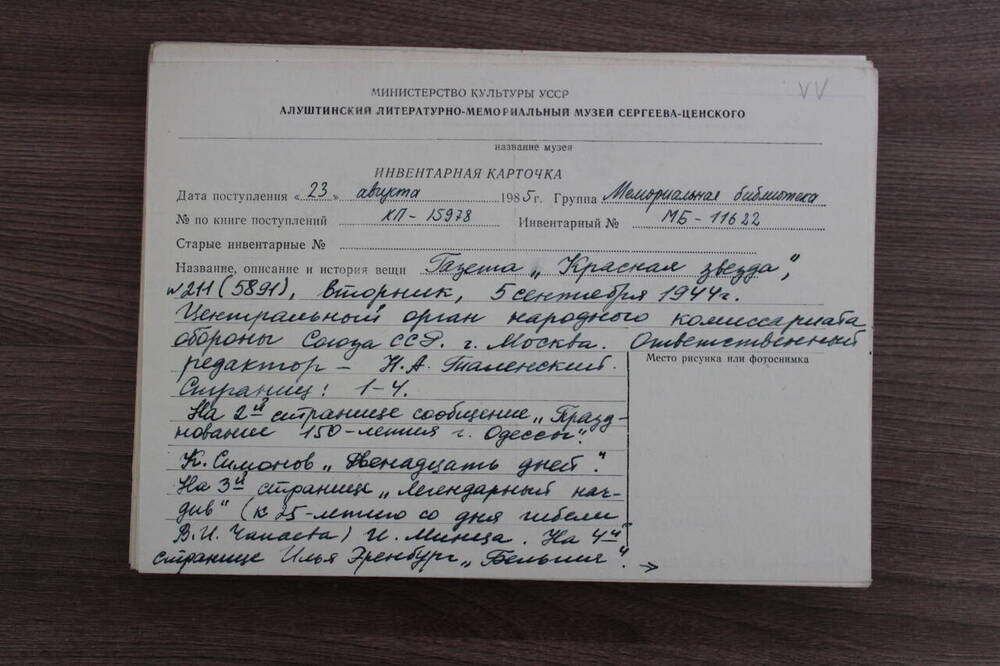 VV
МИНИСТЕРСТВО КУЛЬТУРЫ УССР
АЛУШТИНСКИЙ ЛИТЕРАТУРНО-МЕМОРИАЛЬНЫЙ МУЗЕЙ СЕРГЕЕВА-ЦЕНСКОГО
название музея
ИНВЕНТАРНАЯ КАРТОЧКА
Дата поступления «23» августа 1985г. Группа Мемориальная библиотека
№ по книге поступлений КП-15978 Инвентарный № МБ-11622
Старые инвентарные №
Название, описание и история вещи Газета „Красная звезда",
№211 (5891), вторник, 5 сентября 1944г.
Центральный орган народного комиссариата
обороны Союза ССР. г. Москва. Ответственный
редактор – Н.А. Таленский.
Страниц: 1-4.
На 2й странице сообщение „Празд-
нование 150-летия г. Одессы".
К. Симонов „Двенадцать дней".
На 3й странице „Легендарный нач-
див" (к 25-летию со дня гибели
В.И. Чапаева) И. Минца. На 4й
странице Илья Эренбург „Бельгия". →
Место рисунка или фотоснимка